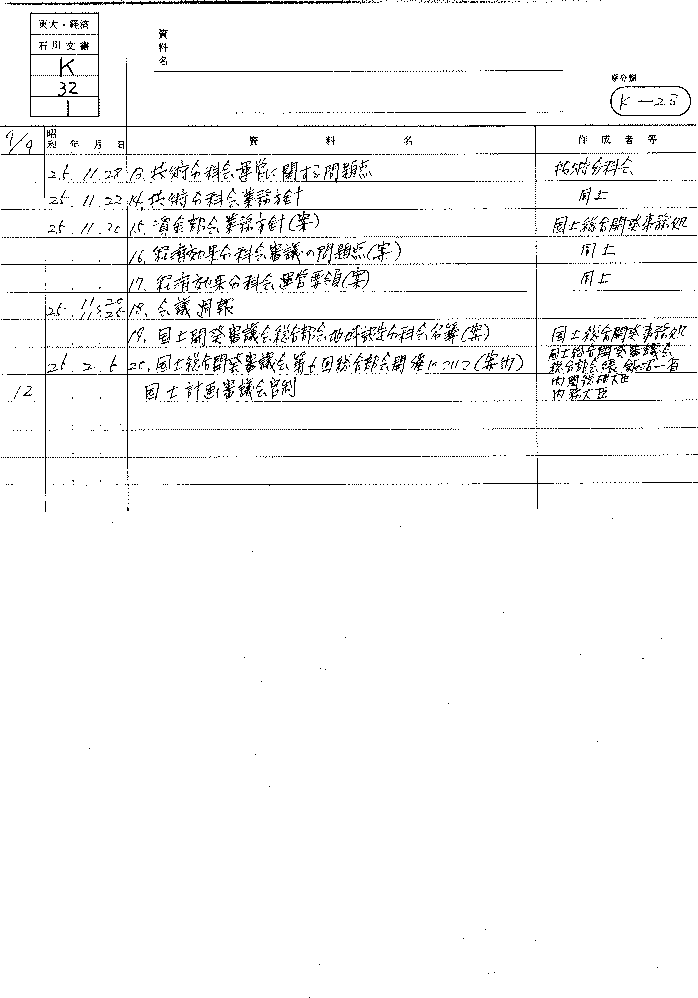 東大・経済
石川文書
K
32
1
資料名
原分類
K-25
9/9 昭和 年 月 日 資 料 名 作成者等
25. 11. 28 13. 技術分科会運営に関する問題点 技術分科会
25. 11. 22 14. 技術分科会業務方針 同上
25. 11. 20 15. 資金部会業務方針(案) 国土総合開発事務処
16. 経済効果分科会審議の問題点(案) 同上
17. 経済効果分科会運営要領(案) 同上
25. 11 18. 会議週報
19. 国土開発審議会総合部会地域設定分科会名簿(案) 国土総合開発事務処
25. 2. 5 20. 国土総合開発審議会第6回総合部会開催について(案内) 国土総合開発審議会
総合部会長 飯沼一省
12 国土計画審議会官制 内閣総理大臣
内務大臣